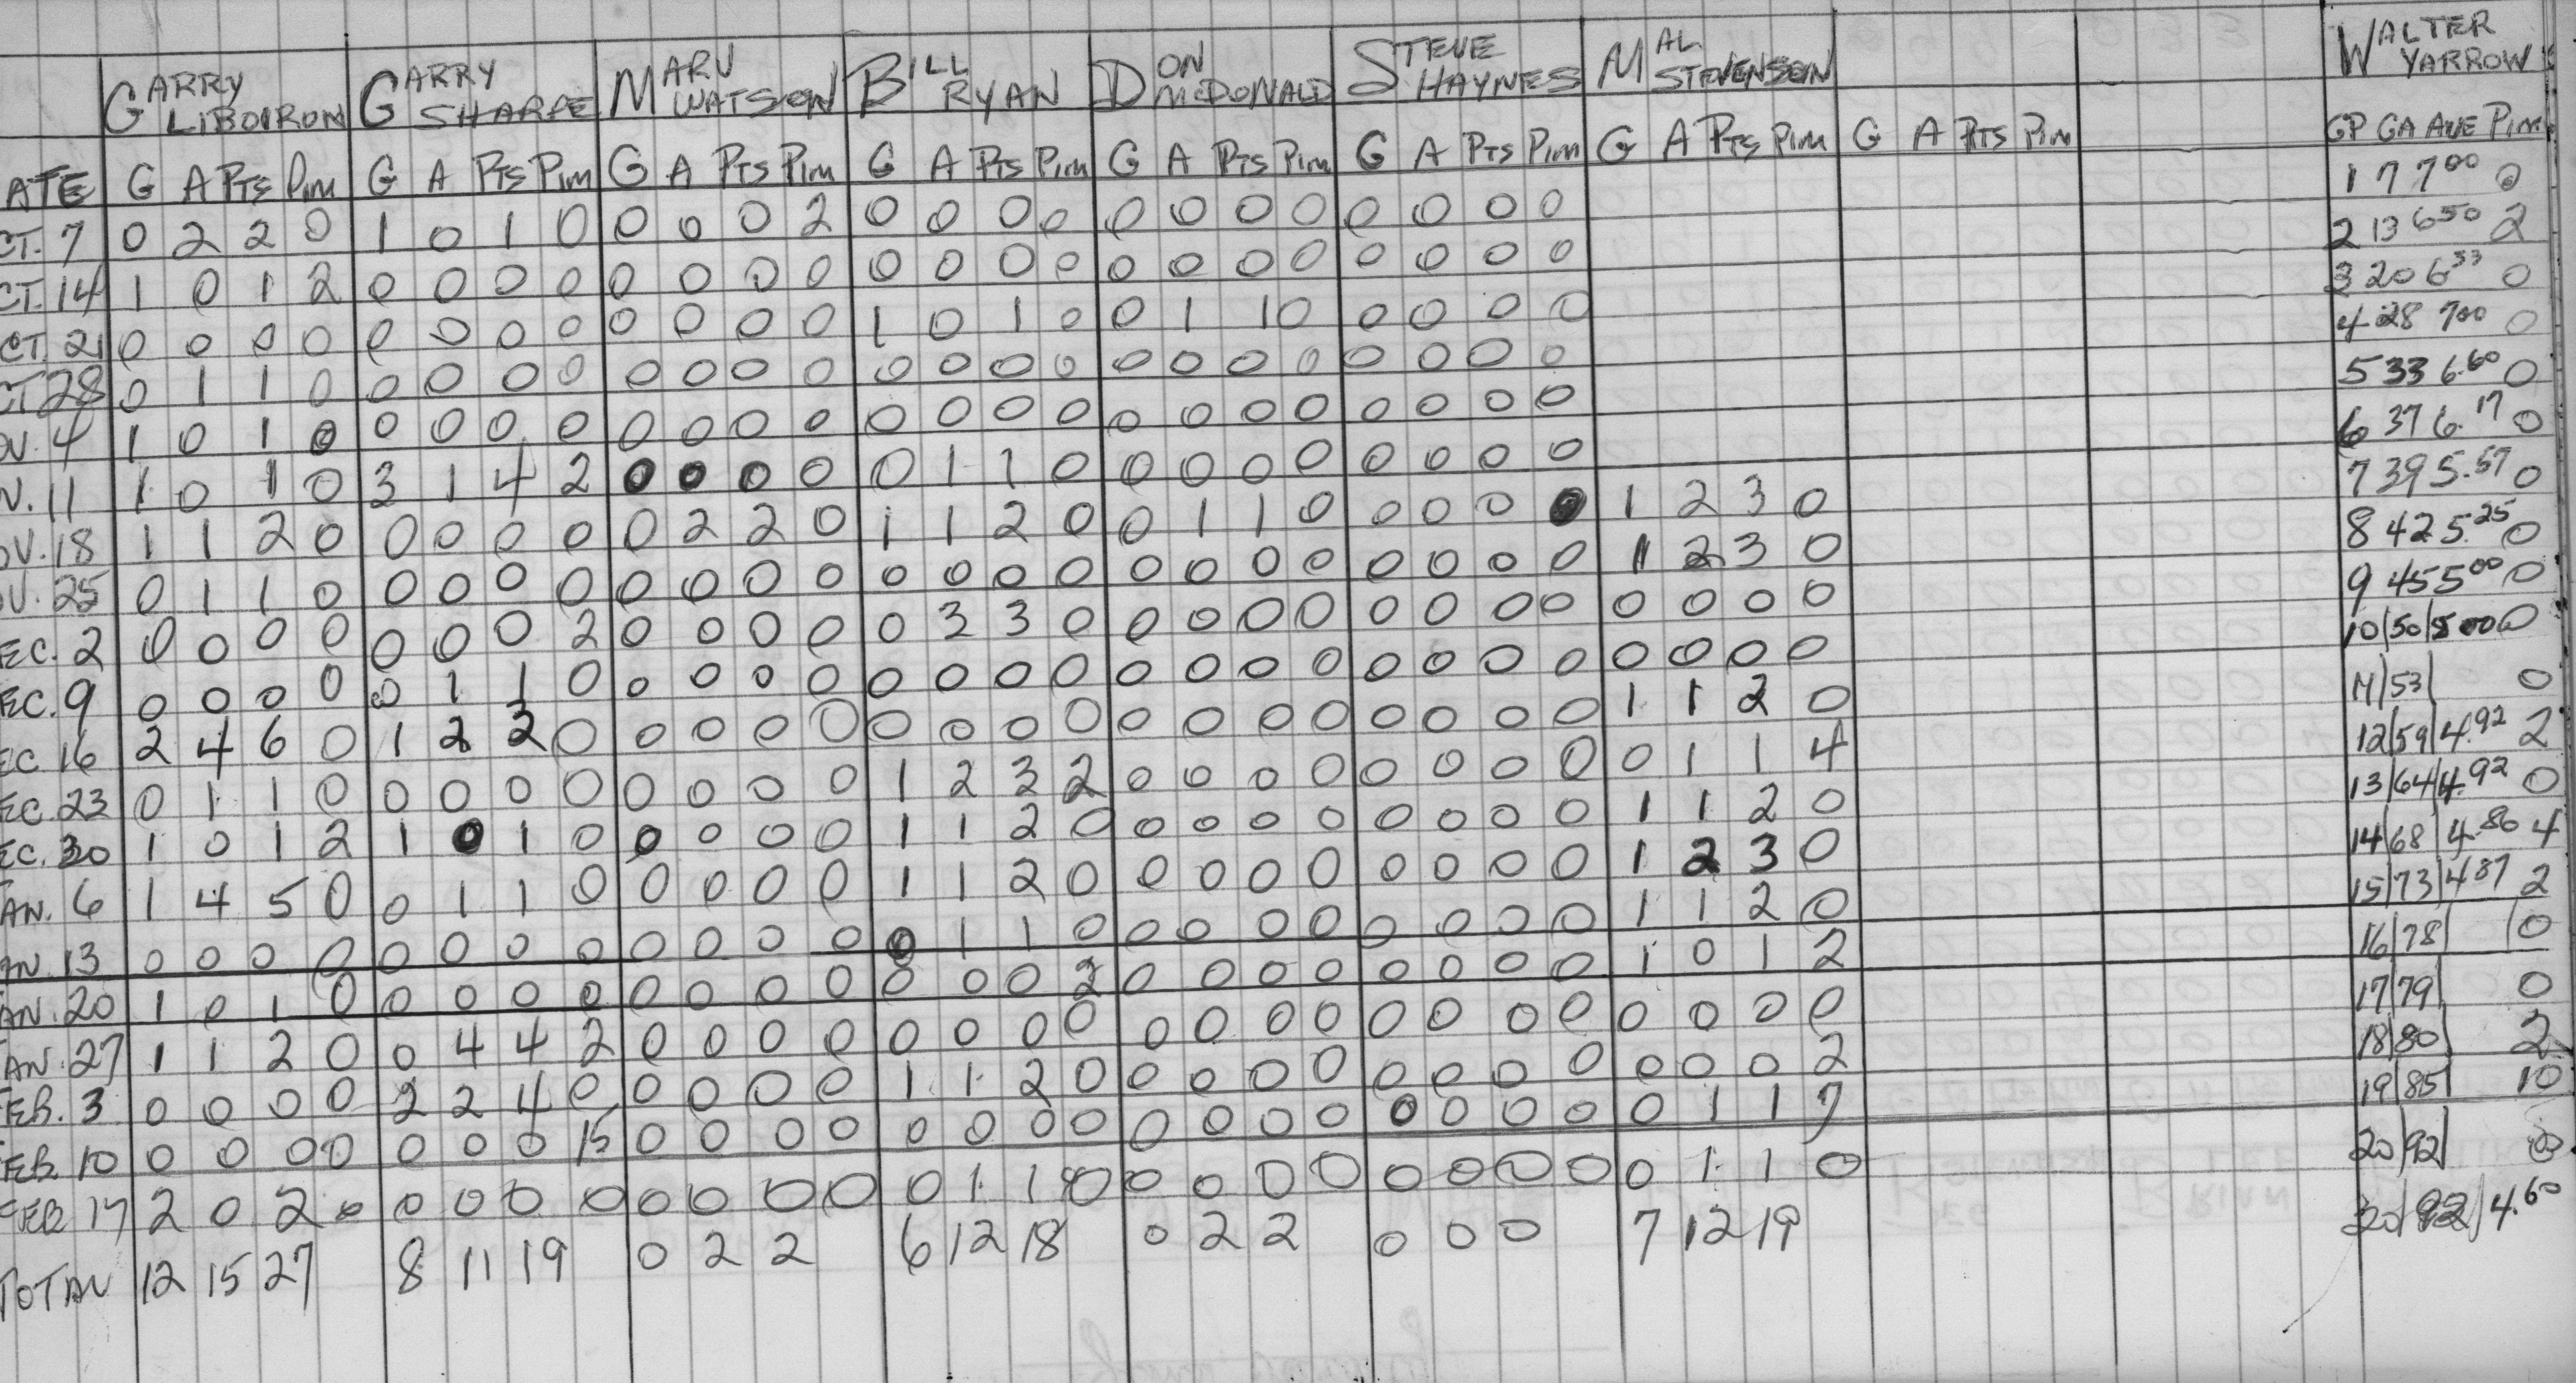 GARRY LIBOIRON GARRY SHARPE MARV WATSON BILL RYAN DON McDONALD STEVE HAYNES MAL STEVENSON WALTER YARROW
ATE G A PTS Pim G A PTS Pim G A PTS Pim G A PTS Pim G A PTS Pim G A PTS Pim G A PTS Pim G A PTS Pim GP GA AVE Pim
CT. 7 0 2 2 0 1 0 1 0 0 0 0 2 0 0 0 0 0 0 0 0 0 0 0 0 1 7 7.00 0
CT. 14 1 0 1 2 0 0 0 0 0 0 0 0 0 0 0 0 0 0 0 0 0 0 0 0 2 13 6.50 2
CT. 21 0 0 0 0 0 0 0 0 0 0 0 0 1 0 1 0 0 1 1 0 0 0 0 0 3 20 6.33 0
CT 28 0 1 1 0 0 0 0 0 0 0 0 0 0 0 0 0 0 0 0 0 0 0 0 0 4 28 7.00 0
OV. 4 1 0 1 0 0 0 0 0 0 0 0 0 0 0 0 0 0 0 0 0 0 0 0 0 5 33 6.60 0
V. 11 1 0 1 0 3 1 4 2 0 0 0 0 0 1 1 0 0 0 0 0 0 0 0 0 6 37 6.17 0
OV. 18 1 1 2 0 0 0 0 0 0 2 2 0 1 1 2 0 0 1 1 0 0 0 0 0 1 2 3 0 7 39 5.57 0
OV. 25 0 1 1 0 0 0 0 0 0 0 0 0 0 0 0 0 0 0 0 0 0 0 0 0 1 2 3 0 8 42 5.25 0
EC. 2 0 0 0 0 0 0 0 2 0 0 0 0 0 3 3 0 0 0 0 0 0 0 0 0 0 0 0 0 9 45 5.00 0
EC. 9 0 0 0 0 0 1 1 0 0 0 0 0 0 0 0 0 0 0 0 0 0 0 0 0 0 0 0 0 10 50 5.00 0
EC. 16 2 4 6 0 1 2 3 0 0 0 0 0 0 0 0 0 0 0 0 0 0 0 0 0 1 1 2 0 11 53 0
EC. 23 0 1 1 0 0 0 0 0 0 0 0 0 1 2 3 2 0 0 0 0 0 0 0 0 0 1 1 4 12 59 4.92 2
EC. 30 1 0 1 2 1 0 1 0 0 0 0 0 1 1 2 0 0 0 0 0 0 0 0 0 1 1 2 0 13 64 4.92 0
AN. 6 1 4 5 0 0 1 1 0 0 0 0 0 1 1 2 0 0 0 0 0 0 0 0 0 1 2 3 0 14 68 4.86 4
AN. 13 0 0 0 0 0 0 0 0 0 0 0 0 0 1 1 0 0 0 0 0 0 0 0 0 1 1 2 0 15 73 4.87 2
AN. 20 1 0 1 0 0 0 0 0 0 0 0 0 0 0 0 2 0 0 0 0 0 0 0 0 1 0 1 2 16 78 0
AN. 27 1 1 2 0 0 4 4 2 0 0 0 0 0 0 0 0 0 0 0 0 0 0 0 0 0 0 0 0 17 79 0
FEB. 3 0 0 0 0 2 2 4 0 0 0 0 0 1 1 2 0 0 0 0 0 0 0 0 0 0 0 0 2 18 80 2
FEB. 10 0 0 0 0 0 0 0 15 0 0 0 0 0 0 0 0 0 0 0 0 0 0 0 0 0 1 1 7 19 85 10
FEB 17 2 0 2 0 0 0 0 0 0 0 0 0 0 1 1 0 0 0 0 0 0 0 0 0 0 1 1 0 20 92 0
TOTAL 12 15 27 8 11 19 0 2 2 6 12 18 0 2 2 0 0 0 7 12 19 20 92 4.60